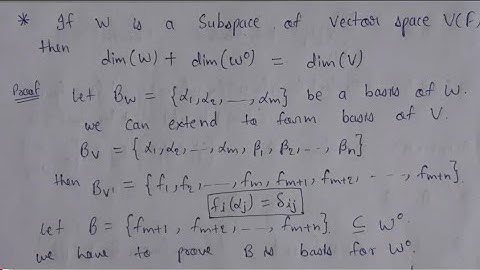 * If W is a Subspace of Vector space V(F)
then
dim(W) + dim(W⁰) = dim(V)
Proof Let B_W = {α₁, α₂, ..., αm} be a basis of W.
we can extend to form basis of V.
B_V = {α₁, α₂, ..., αm, β₁, β₂, ..., βn}
then B_V' = {f₁, f₂, ..., fm, fm+1, fm+2, ..., fm+n}.
fj(αj) = δij
Let B = {fm+1, fm+2, ..., fm+n} ⊆ W⁰.
we have to prove B is basis for W⁰.